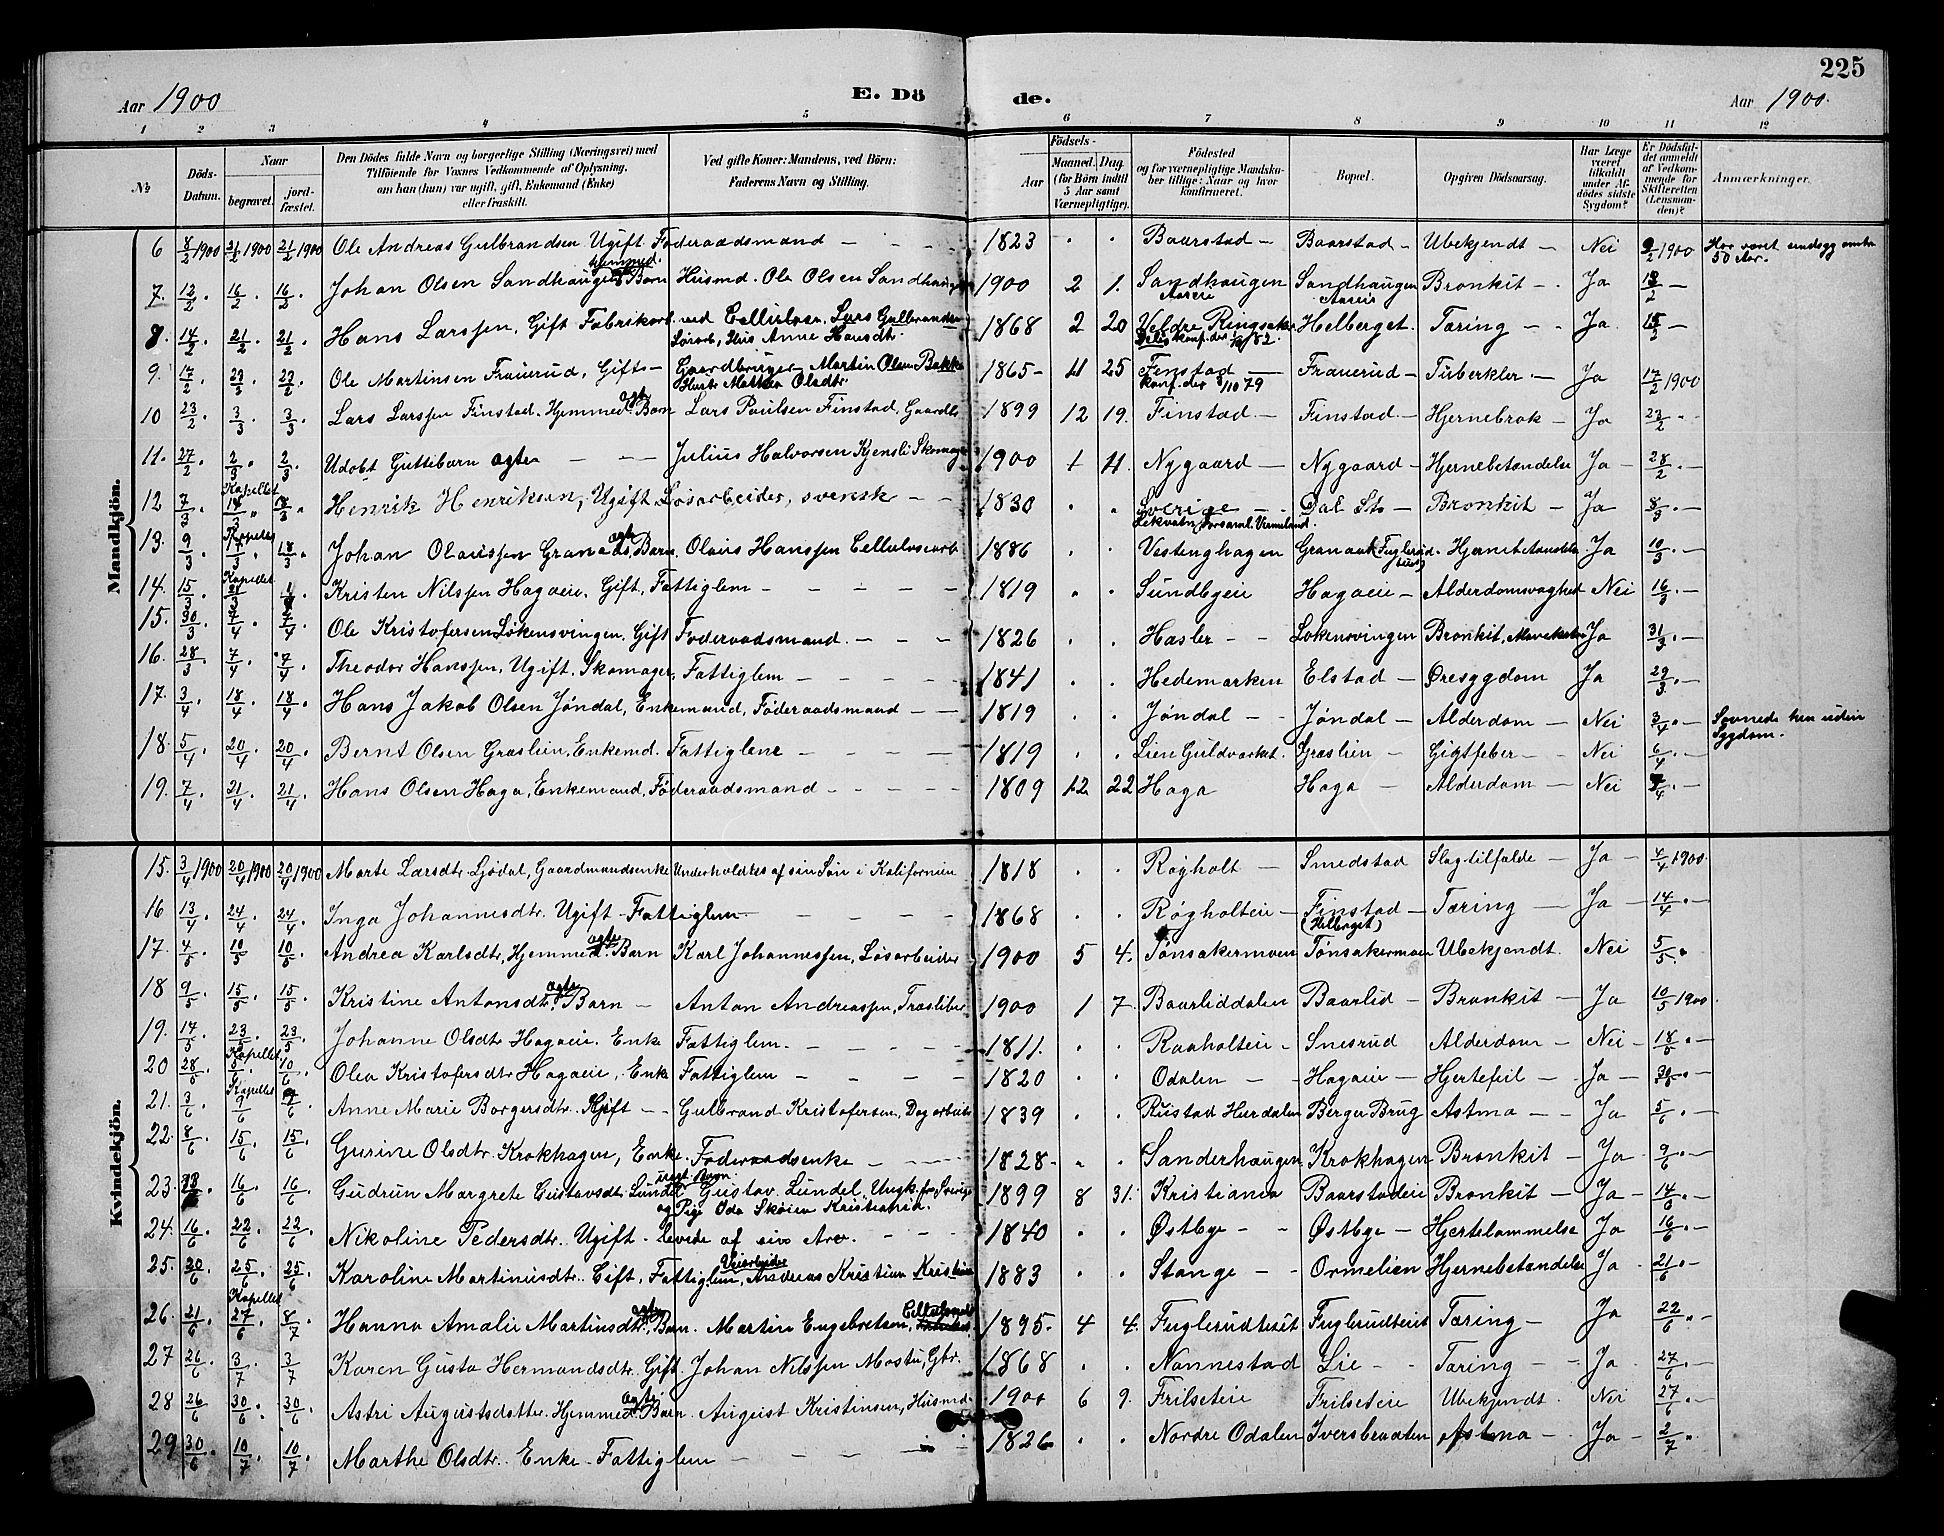 225
Aar 1900
E. Dö de.
Aar 1900.
1 2 3 4 5 6 7 8 9 10 11 12
№
Döds-Datum.
Naar
begravet.
jordfæstet.
Den Dödes fulde Navn og borgerlige Stilling (Næringsvei) med
Tilföiende for Voxnes Vedkommende af Oplysning,
om han (hun) var ugift, gift, Enkemand (Enke)
eller fraskilt.
Ved gifte Koner: Mandens, ved Börn:
Faderens Navn og Stilling.
Födsels-
Aar
Maaned. Dag.
(for Börn indtil 5 Aar samt Værnepligtige).
Födested
og for værnepligtige Mandskaber tillige: Naar og hvor konfirmeret.
Bopæl.
Opgiven Dödsaarsag.
Har Læge været tilkaldt under Afdödes sidste Sygdom?
Er Dödsfaldet anmeldt af Vedkommende for Skifteretten (Lensmanden)?
Anmærkninger.
Mandkjön.
6 8/2 1900 21/2 1900 21/2 1900 Ole Andreas Gulbrandsen Ugift Föderaadsmand – 1823 Baarstad – Baarstad – Ubekjendt – Nei 9/2 1900 Har været sindssyg omtr 50 Aar.
7. 12/2. 16/2. 16/2. Johan Olsen Sandhaugen Hjemmed. Barn Husmd. Ole Olsen Sandhaugen 1900 2 1. Sandhaugen Aaseie Sandhaugen Aaseie Bronkit – Ja 13/2 –
8. 14/2. 21/2. 21/2. Hans Larssen, Gift Fabrikarb. ved Cellulosen. Lars Gulbrandsen 1868 2 20 Veldre Ringsaker Helberget. Tæring – – Ja 15/2 –
Løsarb, Hus Anne Hansdt. konf. der 82.
9. 17/2. 23/2. 23/2. Ole Martinsen Frauerud, Gift – Gaardbruger Martin Olsen Bakke 1865 – 4 25 Finstad – Frauerud – Tuberkler – Ja 17/2 1900
Hustr Mathea Olsdtr konf. der 3/10 79
10 23/2. 3/3. 3/3. Lars Larssen Finstad. Hjemmed ægte Barn Lars Paulsen Finstad, Gaardb. 1899 12 19. Finstad – Finstad – Hjernebrok – Ja 23/2 –
11. 27/2. 2/3. 2/3. Udøbt Guttebarn ægte – – Julius Halvorsen Kjensli Skomager 1900 1 11. Nygaard – Nygaard – Hjernebetændelse Ja – 28/2. –
12 7/3 Kapellet 14/3 18/3 Henrik Henriksen, Ugift Løsarbeider, svensk – – 1830 Sverige – Dal St. – Bronkit – Ja 8/3. –
Vermland.
13. 9/3 Kapellet 17/3. 18/3. Johan Olaussen Granaas, ægte Barn. Olaus Hanssen Cellulosearb 1886 Vestenghagen Granaas (Fuglerud) Hjernebetændelse Ja 10/3. –
14. 15/3. Kapellet 21/3. 1/4. Kristen Nilssen Hagaeie, Gift, Fattiglem – – – – 1819 Sundbyeie Hagaeie – Alderdomsvaghed Nei 16/3. –
15. 30/3 7/4. 7/4. Ole Kristofersen Løkensvingen, Gift Föderaadsmand. – – – 1826 Hasler – – Løkensvingen Bronkit, Ja 31/3. –
16. 28/3. 7/4. 7/4. Theodor Hanssen, Ugift. Skomager. Fattiglem – – – – 1841 Hedemarken Elstad – Øresygdom Ja 29/3. –
17. 3/4. 18/4. 18/4. Hans Jakob Olsen Jøndal, Enkemand, Föderaadsmand – – 1819 Jøndal – Jøndal – Alderdom – Nei 3/4. – Sovnede hen uden Sygdom.
18. 5/4. 20/4. 20/4. Bernt Olsen Græslien. Enkemd. Fattiglem – – – – 1819 Lien Guldværket. Græslien – Gigtfeber – Nei 6/4. –
19. 7/4. 21/4. 21/4. Hans Olsen Haga, Enkemand, Föderaadsmand – – – – 1809 12 22 Haga Haga – Alderdom – Nei 7/4. –
Kvindekjön.
15. 3/4 1900 20/4 1900 20/4 1900 Marte Larsdtr Ljødal, Gaardmandsenke Underholdtes af sin Søn i Kalifornien 1818 Røgholt – Smedstad Slagtilfælde – Ja – 4/4 1900.
16 13/4. 24/4. 24/4. Inga Johannesdtr. Ugift – Fattiglem – – – – 1868 Røgholteie – Finstad – (Helberget) Tæring – Ja – 14/4. –
17. 4/5. 10/5. 10/5. Andrea Karlsdtr, Hjemmed. ægte Barn Karl Johannessen, Løsarbeider 1900 5 4. Tønsakermoen Tønsakermoen Ubekjendt. Nei 5/5.
18 9/5. 15/5. 15/5. Kristine Antonsdtr. ægte Barn – Anton Andreassen, Træsliber 1900 1 7. Baarliddalen Baarlid – Bronkit – Ja 10/5 1900
19. 17/5. 23/5. 23/5. Johanne Olsdtr Hagaeie. Enke Fattiglem. – – – – 1811. Raaholteie – Snesrud Alderdom – Nei – 18/5. –
20 28/5. Kapellet 5/6. 10/6. Olea Kristofersdtr Hagaeie, Enke Fattiglem – – – 1820 Odalen – – Hagaeie – Hjertefeil – Ja – 30/5. –
21. 3/6. Kapellet 7/6 /6. Anne Marie Borgersdtr. Gift – – Gulbrand Kristofersen, Dagarbeider 1839 Rustad Hurdalen Berger Brug Astma – – Ja 5/6. –
22. 8/6. 15/6. 15/6. Gurine Olsdtr. Krokhagen, Enke. Föderaadsenke – – – 1828 – Sanderhaugen Krokhagen Bronkit – Ja 9/6. –
23. 13/6 16/6. 16/6. Gudrun Margrete Gustavsdt. Lundel uægt Barn Gustav Lundel, Ungk. fr. Sverige 1899 8 31. Kristiania Baarstadeie Bronkit – Ja – 14/6. –
og Pige Oda Skøien Kristiania.
24. 16/6. 22/6. 22/6. Nikoline Pedersdtr. Ugift – levede af sin Arv. – – – 1840 Østbye – – Østbye – Hjertelammelse Ja 16/6. –
25. 20/6 25/6. 25/6. Karoline Martinusdtr. Gift, Fattiglem, Veiarbeider Andreas Kristian 1883 Stange – – Ormelien Hjernebetændelse Ja 21/6. –
26. 21/6. Kapellet 27/6. 8/7 Hanna Amalie Martinsdtr, ægte Barn. Martin Engebretsen, 1895. 4 4. Fuglerudteiet Fuglerudteiet Tæring – Ja 22/6. –
27 26/6. 3/7. 3/7 Karen Gusta Hermandsdtr. Gift. Johan Nilssen Mostu, Gbr. 1868 Nannestad Lie – – Tæring – – Ja. 27/6. –
28 26/6. 30/6. 30/6. Astri Augustsdatter. Hjemmed. ægte Barn. August Kristinsen, Husmd. 1900 6 9. Frilseteie Frilseteie Ubekjendt. Nei 27/6. –
29 30/6. 10/7. 10/7. Marthe Olsdtr. Enke – Fattiglem – – – 1826 Nordre Odalen Iversbraaten Astma – Ja – 2/7.